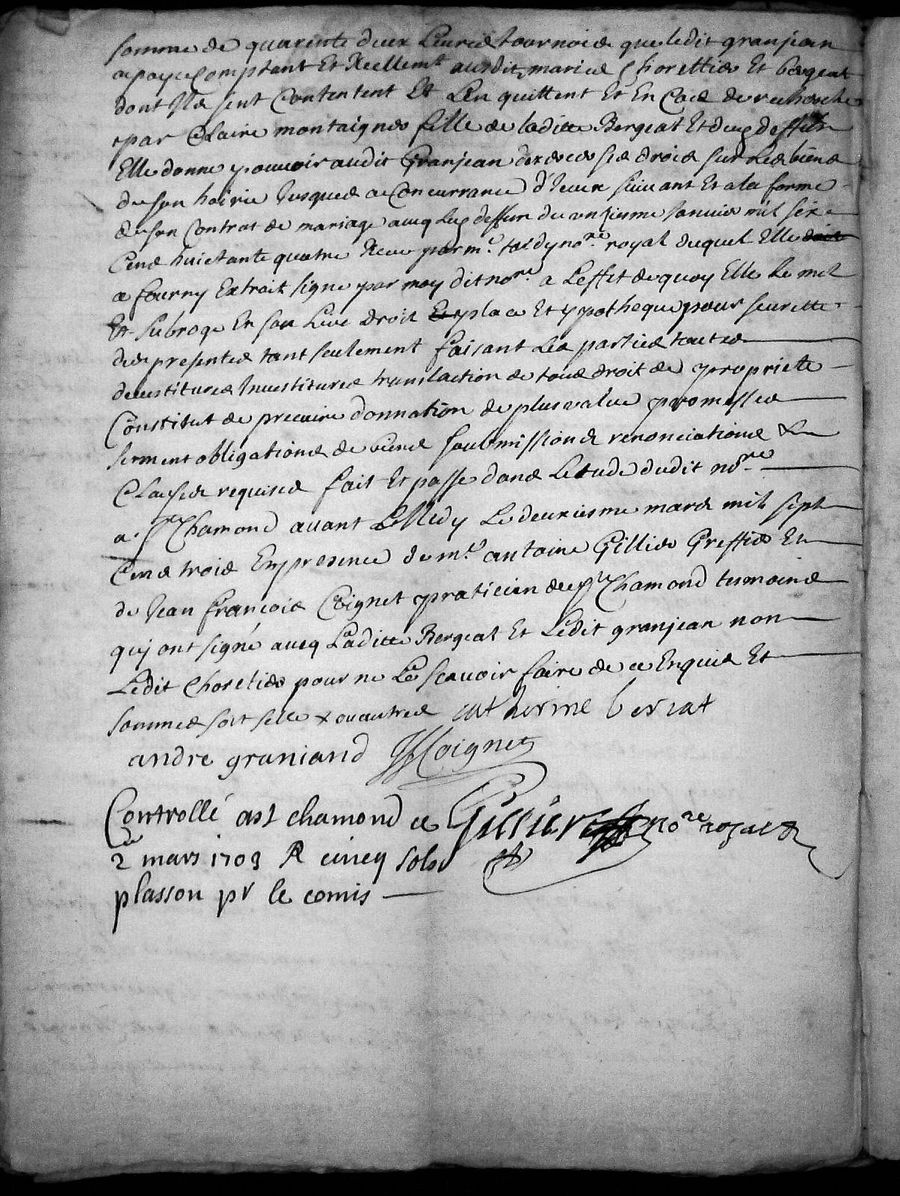 somme de quarente deux Livres tournois que ledit granjean
a payé Comptant Et Reellemt ausdits mariés Choretties Et bergeat
dont Ils sont Contentent Et Len quittent Et En Cas de recherche
par Claire montaignes fille de laditte Bergeat Et duq dessus
Elle donne pouvoir audit Granjean dexercer ses drois sur Les biens
de son hoirie Jusques a Concurrance d'Iceux suivant Et a la forme
de son Contrat de mariage avecq Luq dessus du onziesme Janvie mil six
Cens huictante quatre Receu par me tardy nore royal duquel Elle
a fourny Extrait signe par moy dit nore a Leffet de quoy Elle Le met
Et subroge En son Lieu droit place Et ypotheque pour seurette
des presentes tant seulement faisant Les parties toutes
devestitures Investitures translaction de tous droit de propriete
Constitut de precaire donnation de plus value promesses
serment obligations de biens soubmissions renonciations &
Clauses requises fait Et passé dans Letude dudit nore
a St Chamond avant Midy Le deuxiesme mars mil sept
Cens trois En presence de me antoine Gillies Greffie Et
de Jean francois Coignet praticien de St Chamond tesmoins
qui ont signé avecq Laditte Bergeat Et Ledit granjean non
Ledit Choretties pour ne Le scavoir faire de ce Enquis Et
sommes soit selle ou autres catherine beriat
andre graniand JfCoignet
Controllé a st chamond ce Gillier nore royal
2e mars 1703 R cincq sols
plasson pr le comis